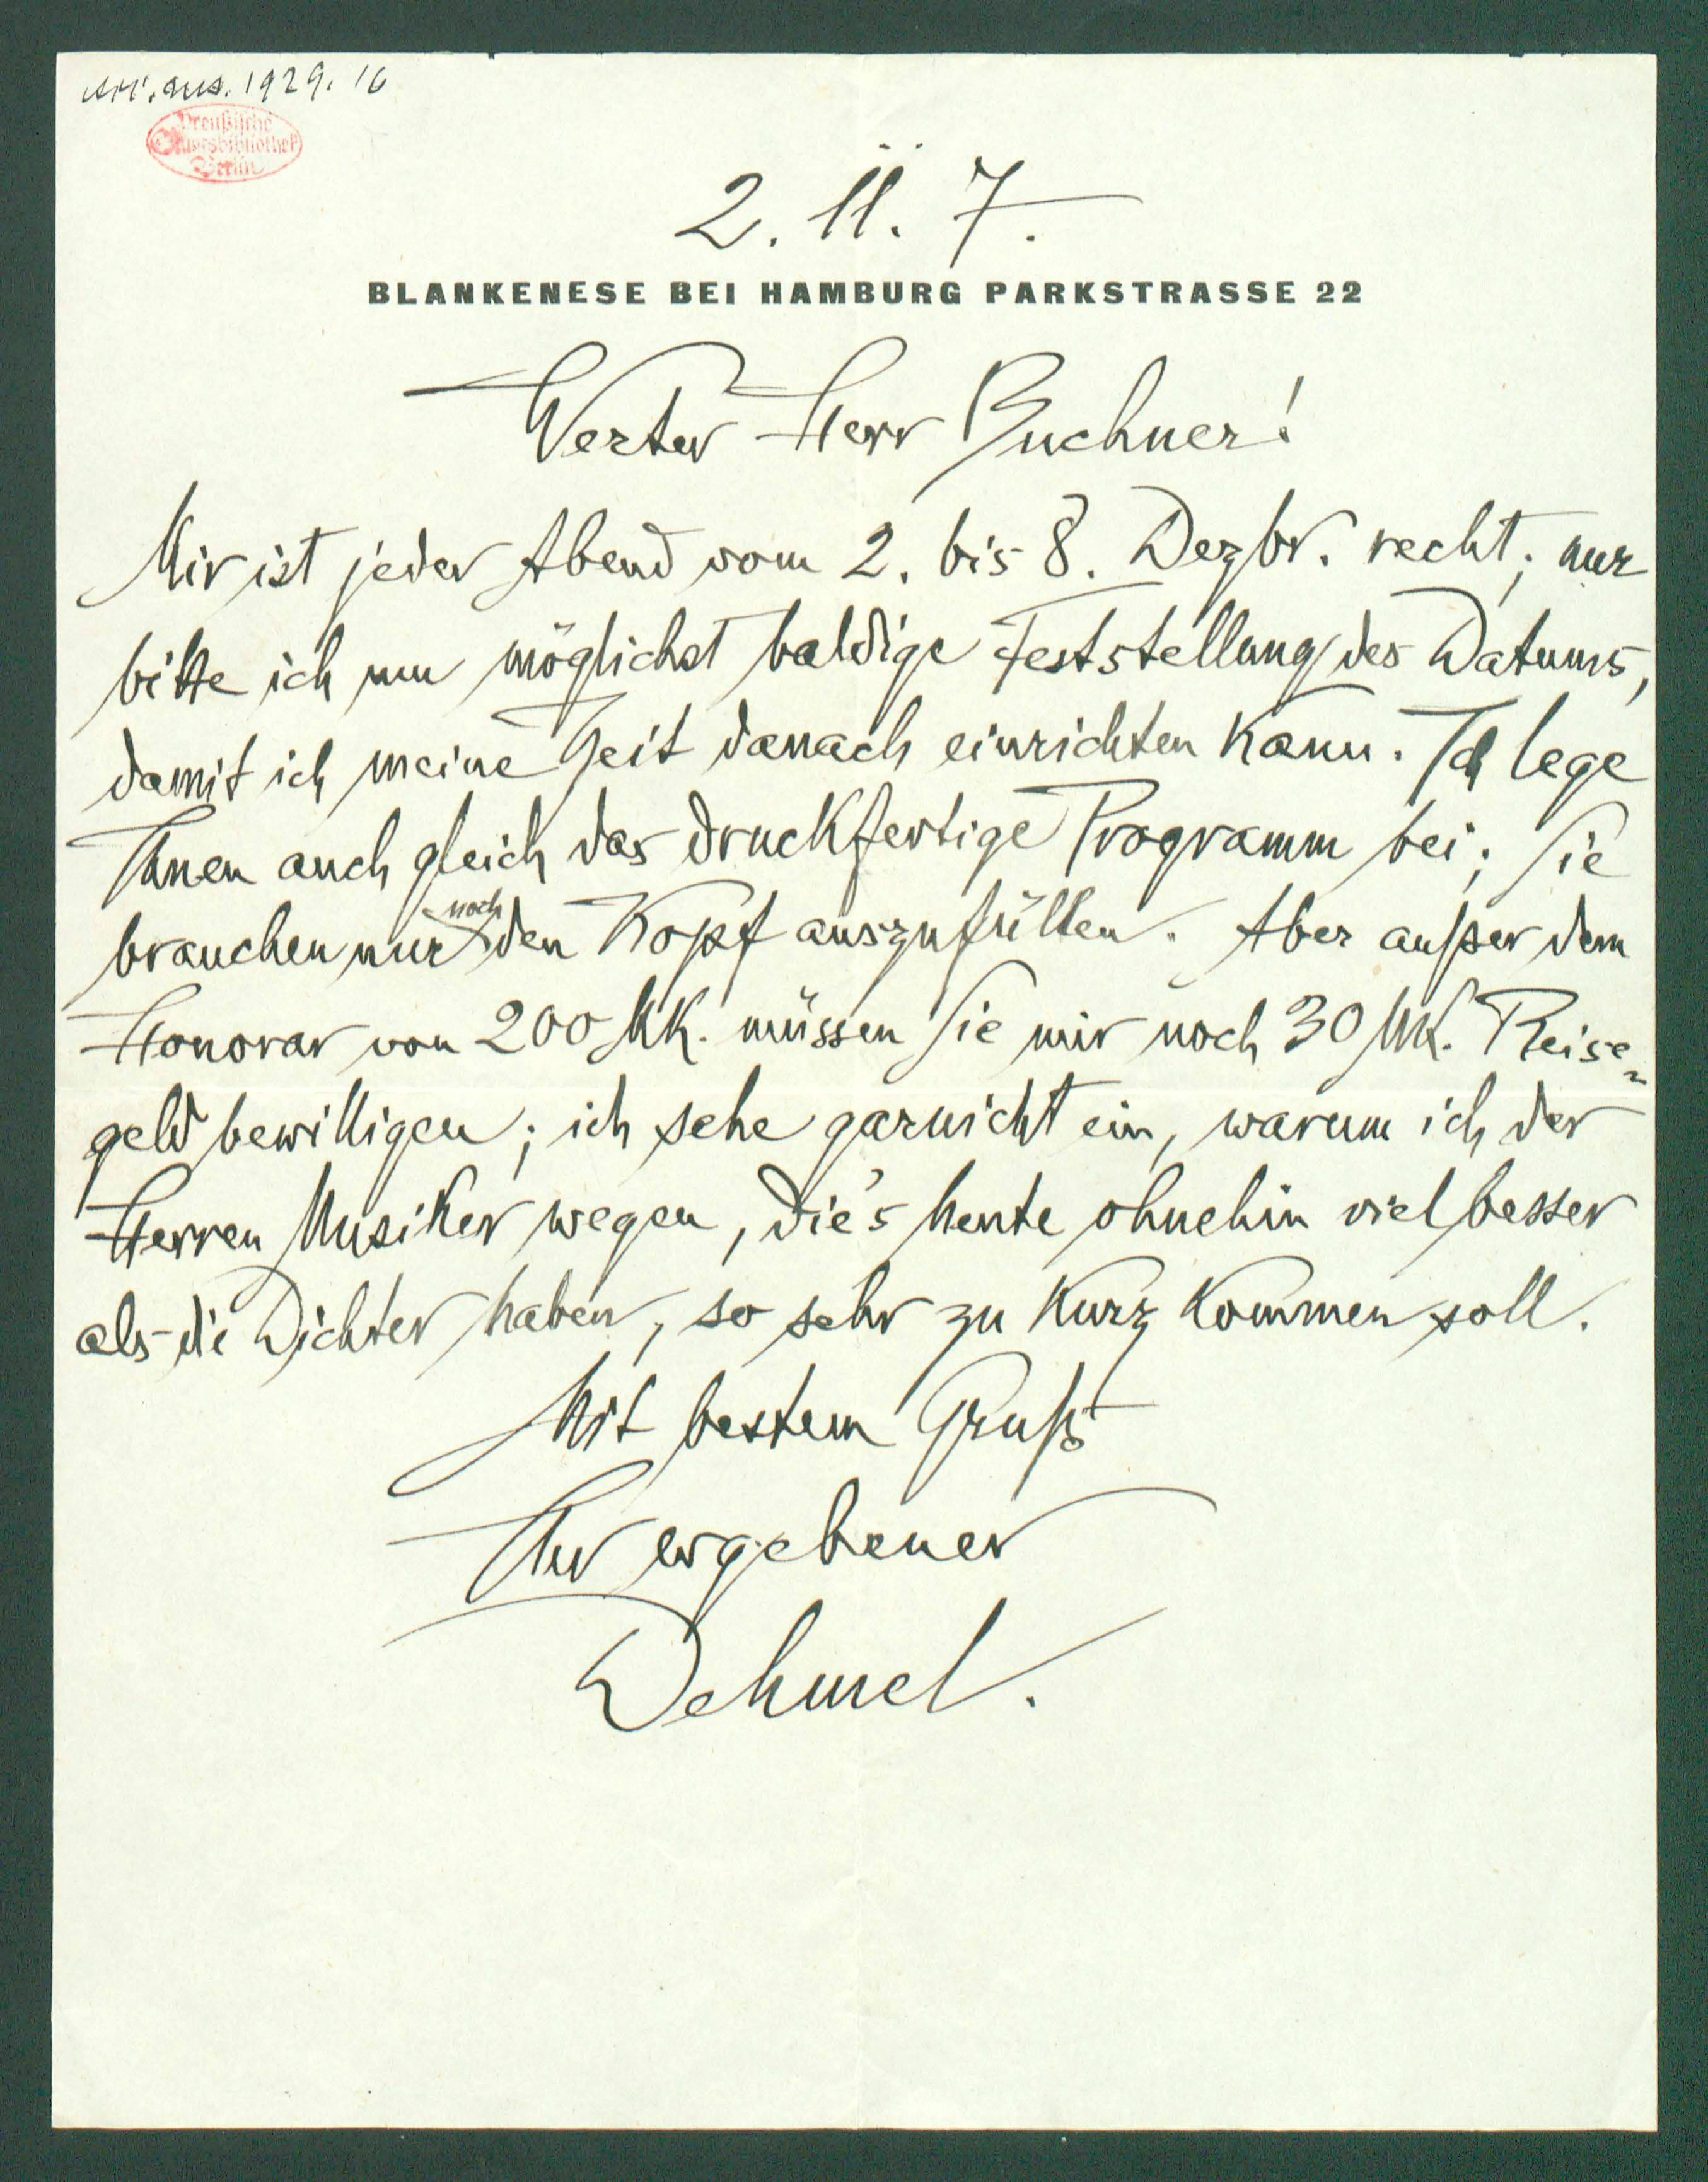 acc. ms. 1929. 16
Preußische
Staatsbibliothek
Berlin
2. 11. 7.
BLANKENESE BEI HAMBURG PARKSTRASSE 22
Werter Herr Buchner!
Mir ist jeder Abend vom 2. bis 8. Dezbr. recht; nur
bitte ich um möglichst baldige Feststellung des Datums,
damit ich meine Zeit danach einrichten kann. Ich lege
Ihnen auch gleich das druckfertige Programm bei; Sie
brauchen nur noch den Kopf auszufüllen. Aber außer dem
Honorar von 200 Mk. müssen Sie mir noch 30 Mk. Reise-
geld bewilligen; ich sehe garnicht ein, warum ich der
Herren Musiker wegen, die's heute ohnehin viel besser
als die Dichter haben, so sehr zu kurz kommen soll.
Mit bestem Gruß
Ihr ergebener
Dehmel.